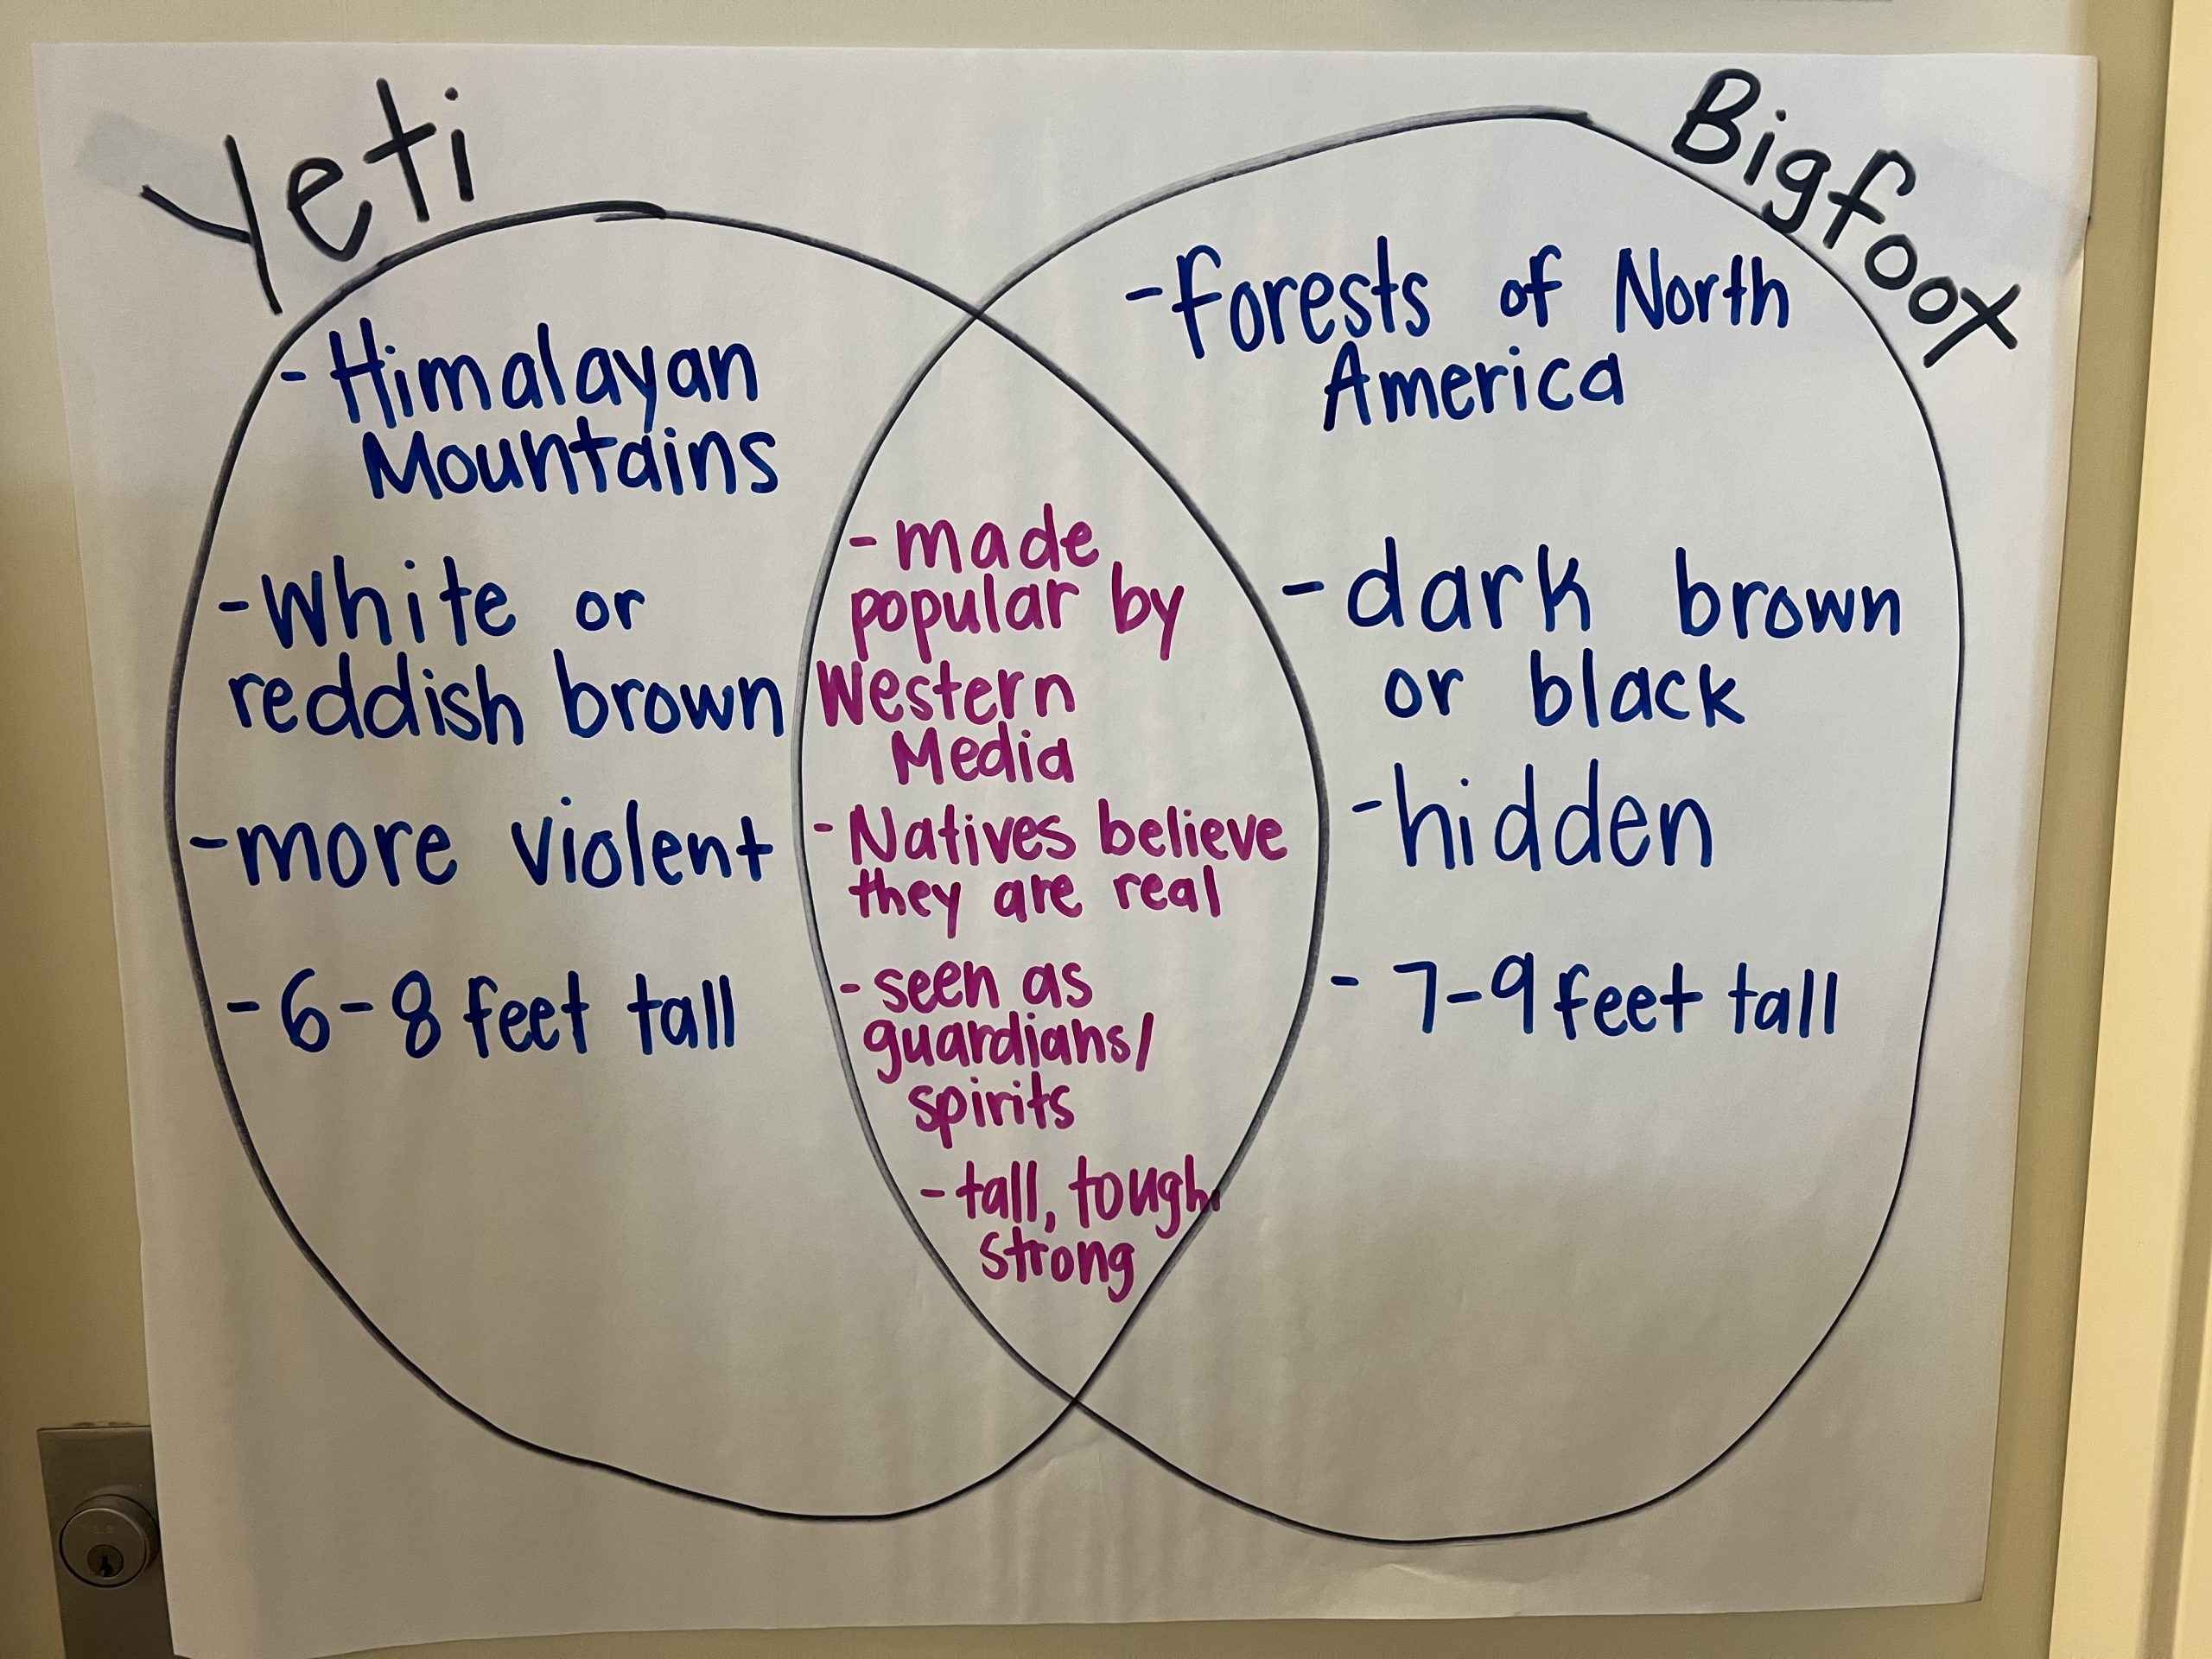 Yeti
- Himalayan
Mountains
- White or
reddish brown
- more violent
- 6-8 feet tall
- made
popular by
Western
Media
- Natives believe
they are real
- seen as
guardians/
spirits
- tall, tough,
strong
Bigfoot
- Forests of North
America
- dark brown
or black
- hidden
- 7-9 feet tall